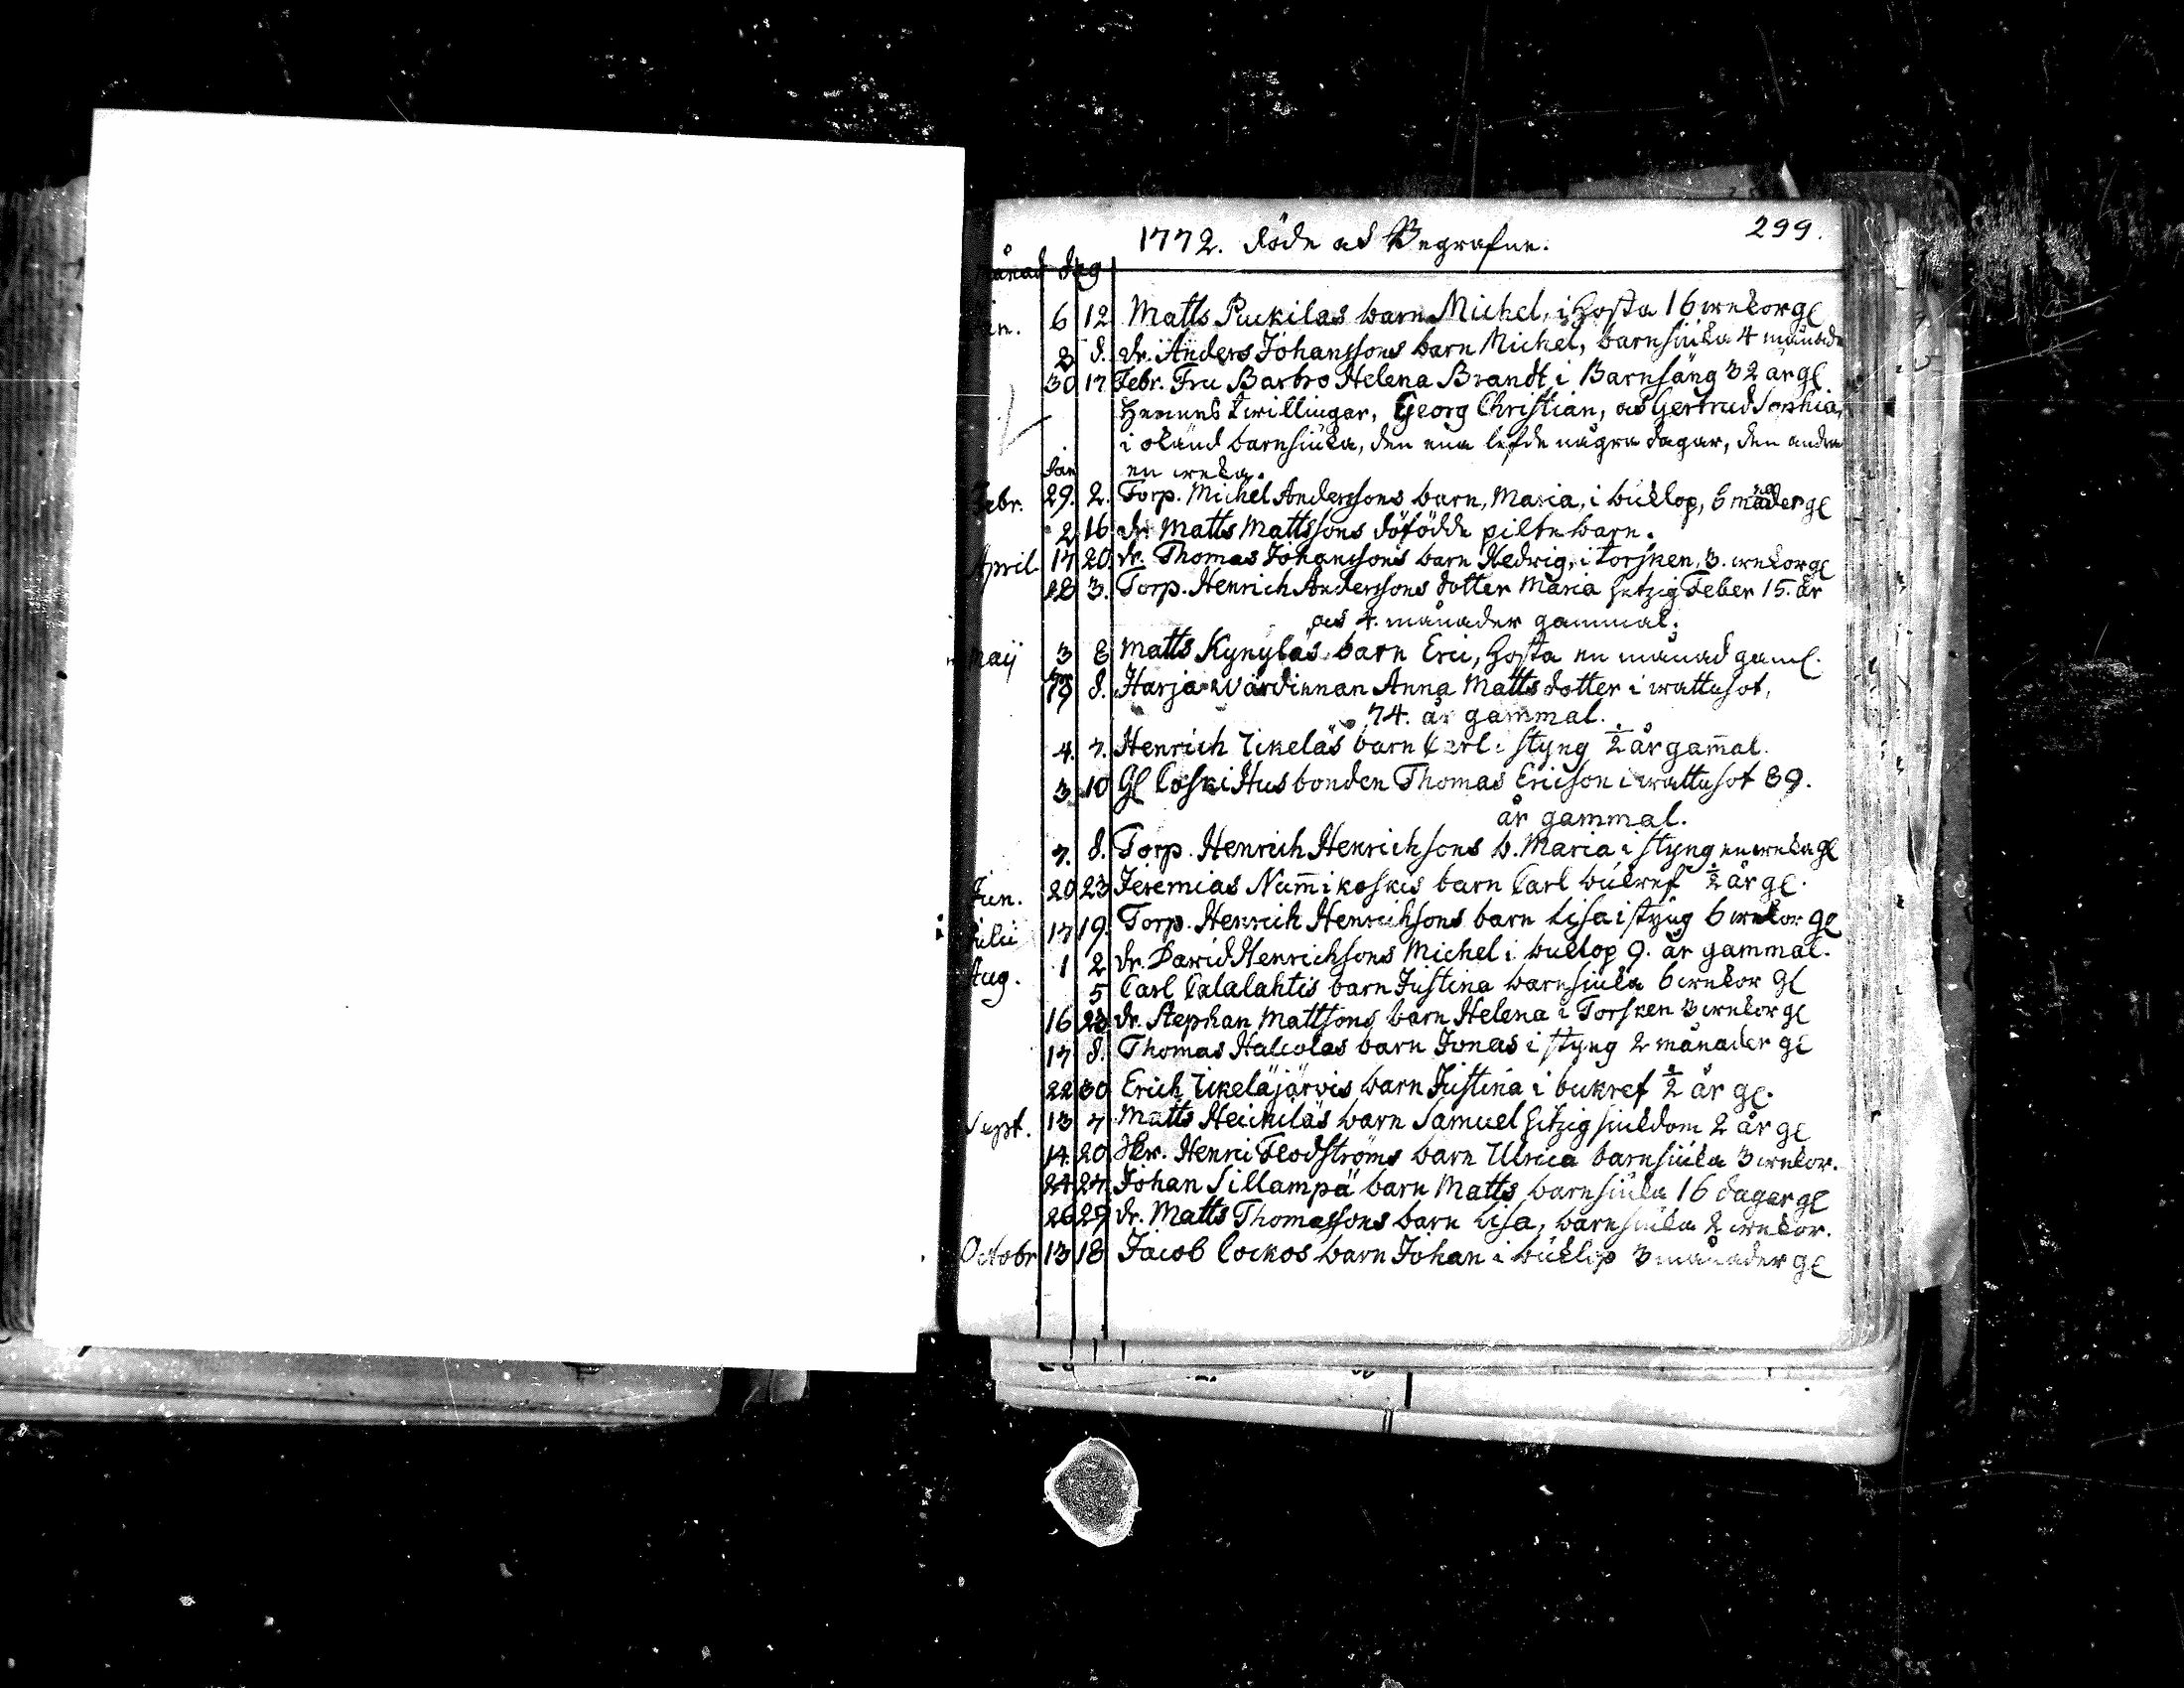 299.
1772. Döde och Begrafne.
Månad dag
Jan. 6 12 Matts Puckilas barn Michel, i Hosta 16 wekor gl
8 d. dr. Anders Johanssons barn Michel, barnsiuka 4 månader
30 17 Febr. Fru Barbro Helena Brandt i Barnsäng 32 år gl.
Hennes twillingar, Georg Christian, och Gertrud Sophia,
i okänd barnsiuka, den ena lefde några dagar, den andra
en weka.
Jan
Febr. 29. 2. Torp. Michel Anderssons barn, Maria, i buklop, 6 månader gl
2 16 dr. Matts Mattssons dödfödde piltebarn.
April 17 20. dr. Thomas Johanssons barn Hedwig, i torsken, 3. wekor gl
28 3. Torp. Henrich Anderssons dotter Maria hetzig Feber 15. år
och 4. månader gammal.
Maij 3 8 Matts Kynyläs barn Eric, Hosta en månad gaml.
Apr
19 d. Harja Wärdinnan Anna Mattsdotter i wattusot,
74. år gammal.
4. 7. Henrich Ikeläs barn Carl i styng ½ år gam̄al.
3 10 Gl Coski Husbonden Thomas Ericson i wattusot 89.
år gammal.
7. d. Torp. Henrich Henrichsons b. Maria i styng en weka gl
Jun. 20 23 Jeremias Num̄ikoskis barn Carl bukref ½ år gl.
Julii 17 19. Torp. Henrich Henrichsons barn Lisa i styng 6 wekor gl
Aug. 1 2 dr. David Henrichsons Michel i buklop 9. år gammal.
5 Carl Calalahtis barn Justina barnsiuka 6 wekor gl
16 23 dr. Stephan Mattsons barn Helena i Torsken 3 wekor gl
17 d. Thomas Halcolas barn Jonas i styng 2 månader gl
22 30 Erich Ikeläjärvis barn Justina i bukref ½ år gl.
Sept. 13 7 Matts Heickiläs barn Samuel hetzig siukdom 2 år gl
14. 20 Hr. Henric Flodströms barn Ulrica barnsiuka 3 wekor.
24 27 Johan Sillampä barn Matts barnsiuka 16 dagar gl
26 29 dr. Matts Thomassons barn Lisa, barnsiuka 2 wekor.
Octobr 13 18 Jacob Cockos barn Johan i buklop 3 månader gl